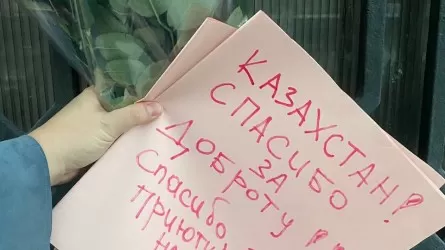 КАЗАХСТАН!
СПАСИБО
ЗА
ДОБРОТУ
Спасибо